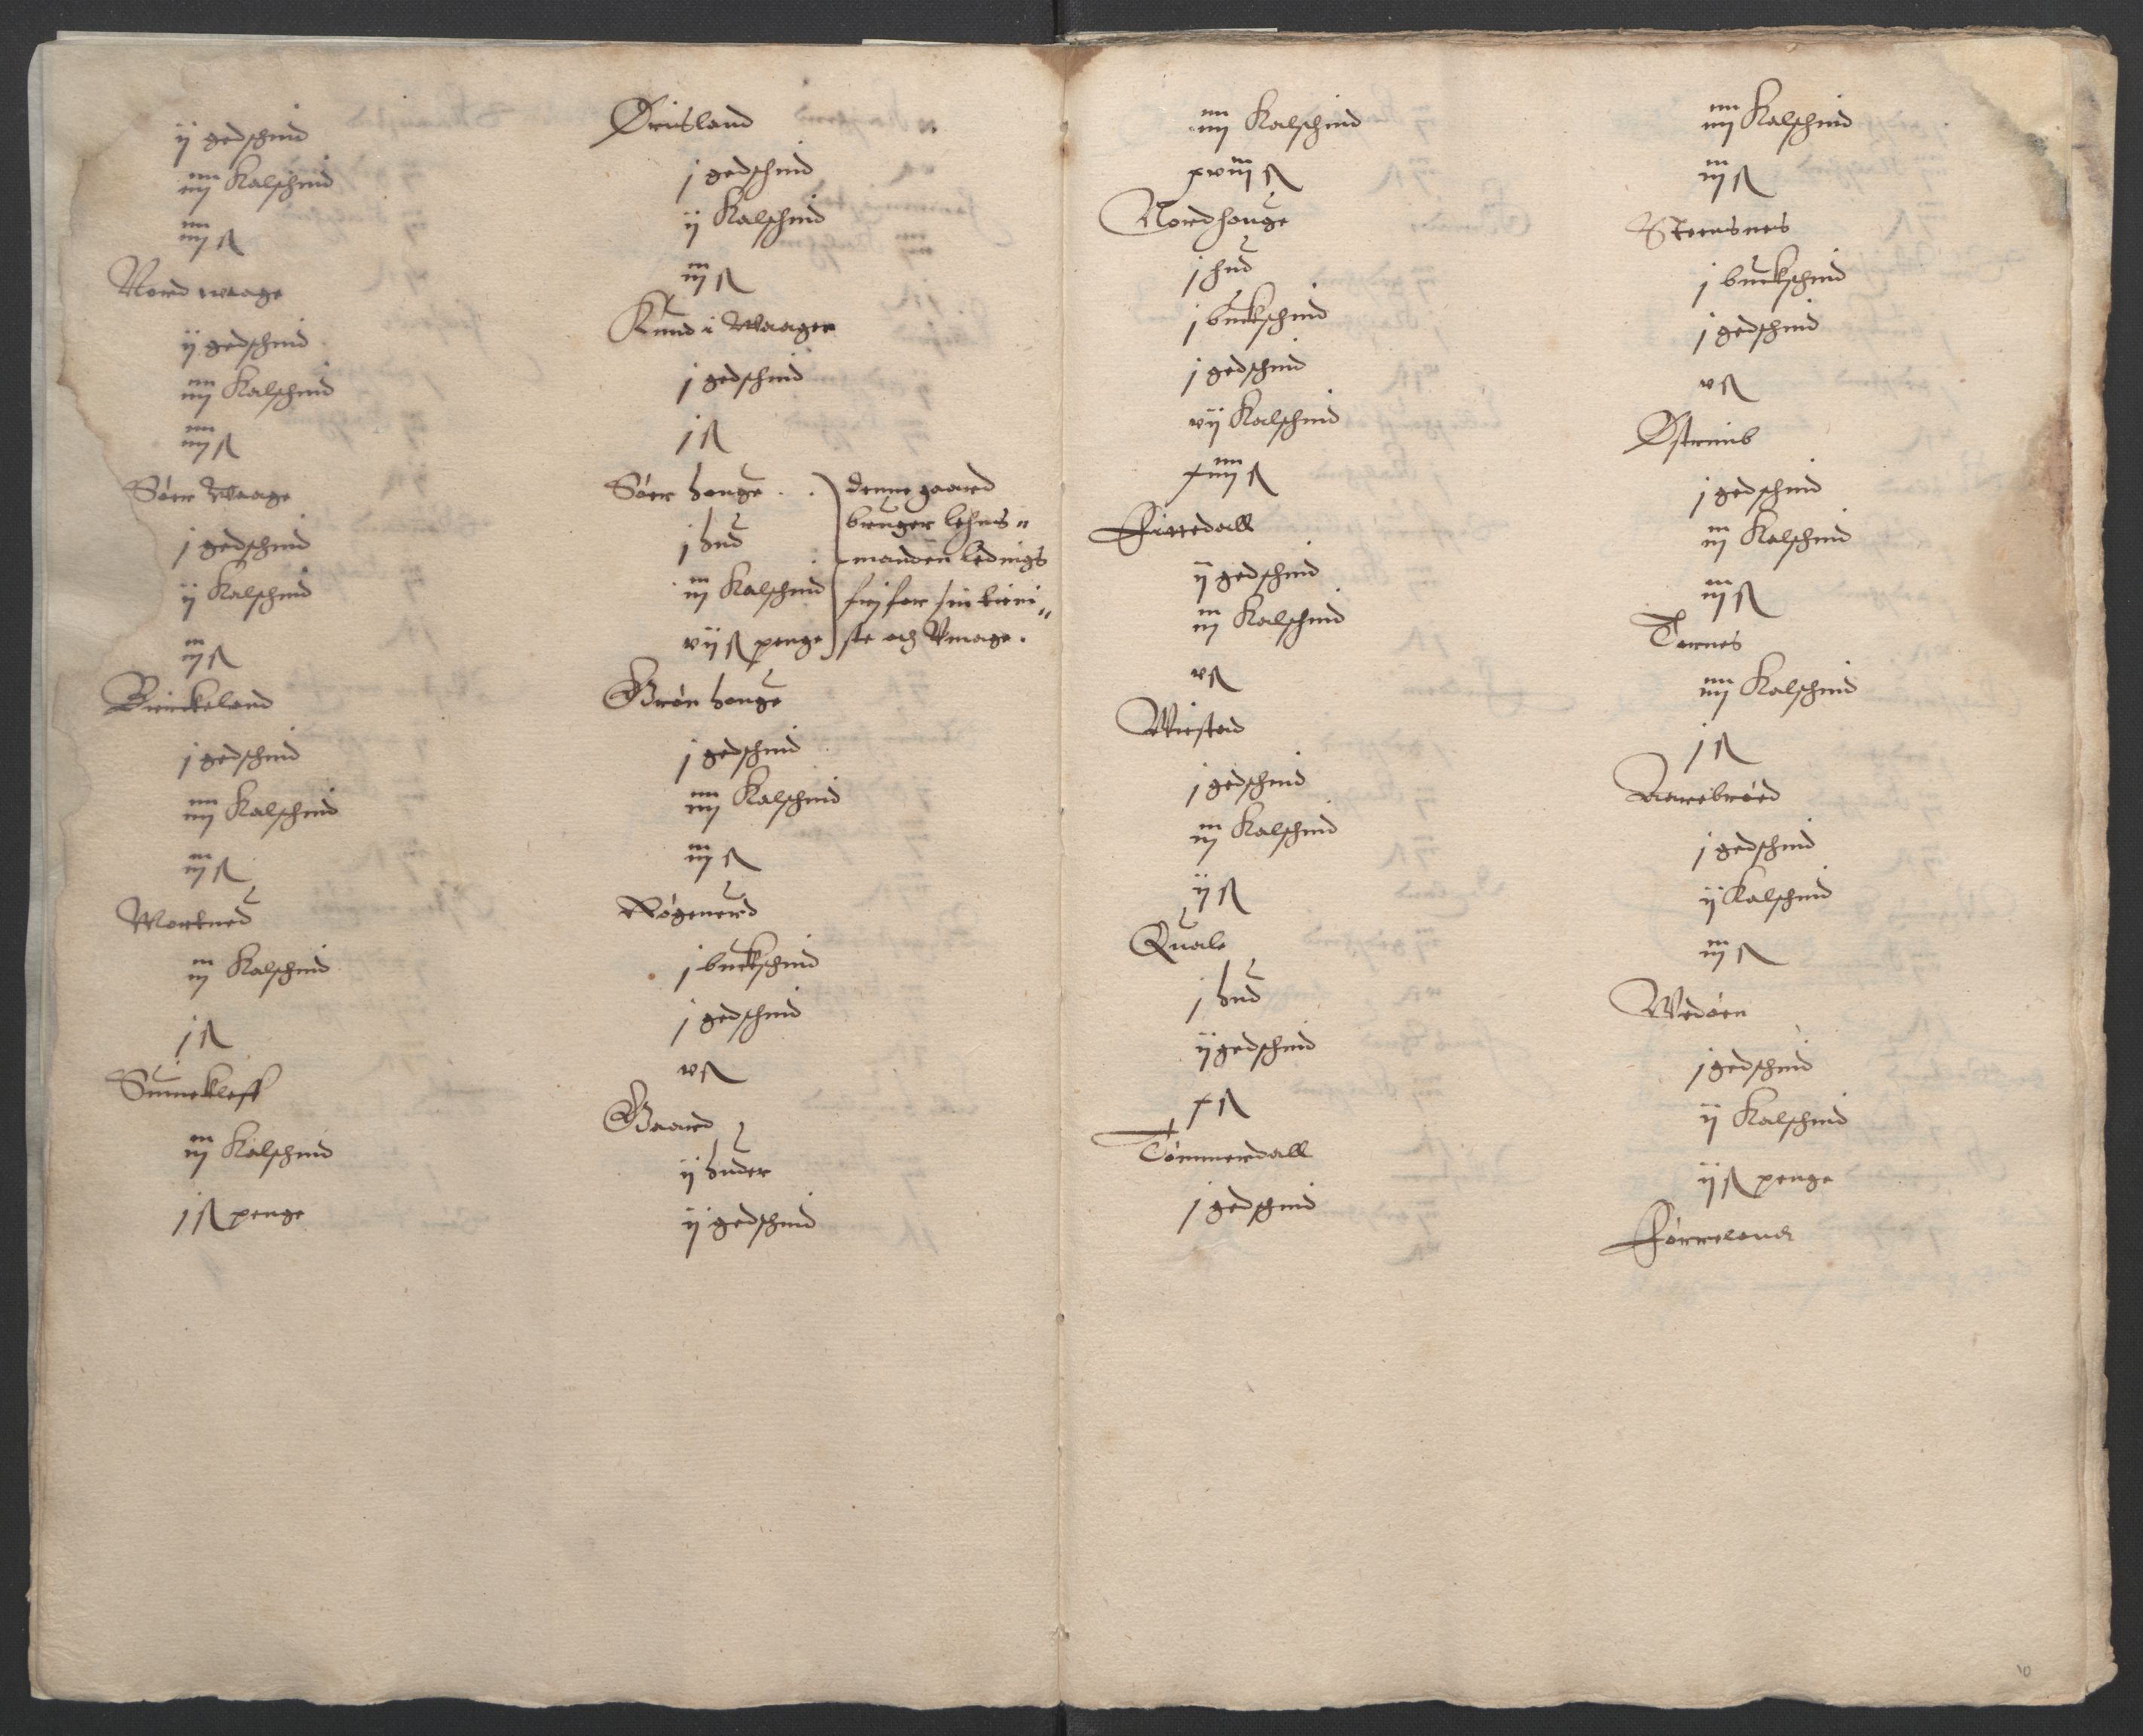 ij gedschind
iiij Kalschind
iiij ß
Nord waage
ij gedschind
iiij Kalschind
iiij ß
Søer Waage
j gedschind
ij Kalschind
iij ß
Birckeland
j gedschind
iiij Kalschind
iij ß
Morkued
iij Kalschind
j ß
Sunekleff
iij Kalschind
j ß penge
Ørisland
j gedschind
ij Kalschind
iij ß
Knud i Waagen
j gedschind
j ß
Søer houge
j hud
iij Kalschind
vij ß penge
denne gaard
bruger lehns"
manden ledings
frij for sin tieni"
ste och Vmage.
Grøn houge
j gedschind
iiij Kalschind
iij ß
Røgenerd
j buckschind
j gedschind
v ß
Gaard
ij huder
ij gedschind
iiij Kalschind
xviij ß
Nordhouge
j hud
j buckschind
j gedschind
vij Kalschind
xiiij ß
Fittedall
ij gedschind
iij Kalschind
v ß
Wiestad
j gedschind
iij Kalschind
ij ß
Quale
j hud
ij gedschind
x ß
Tømmerdall
j gedschind
iiij Kalschind
iij ß
Steensnes
j buckschind
j gedschind
v ß
Østreimb
j gedschind
iij Kalschind
iij ß
Tornes
iiij Kalschind
j ß
Aarebrøed
j gedschind
ij Kalschind
iij ß
Wedøen
j gedschind
ij Kalschind
ij ß penge
Førreland
10